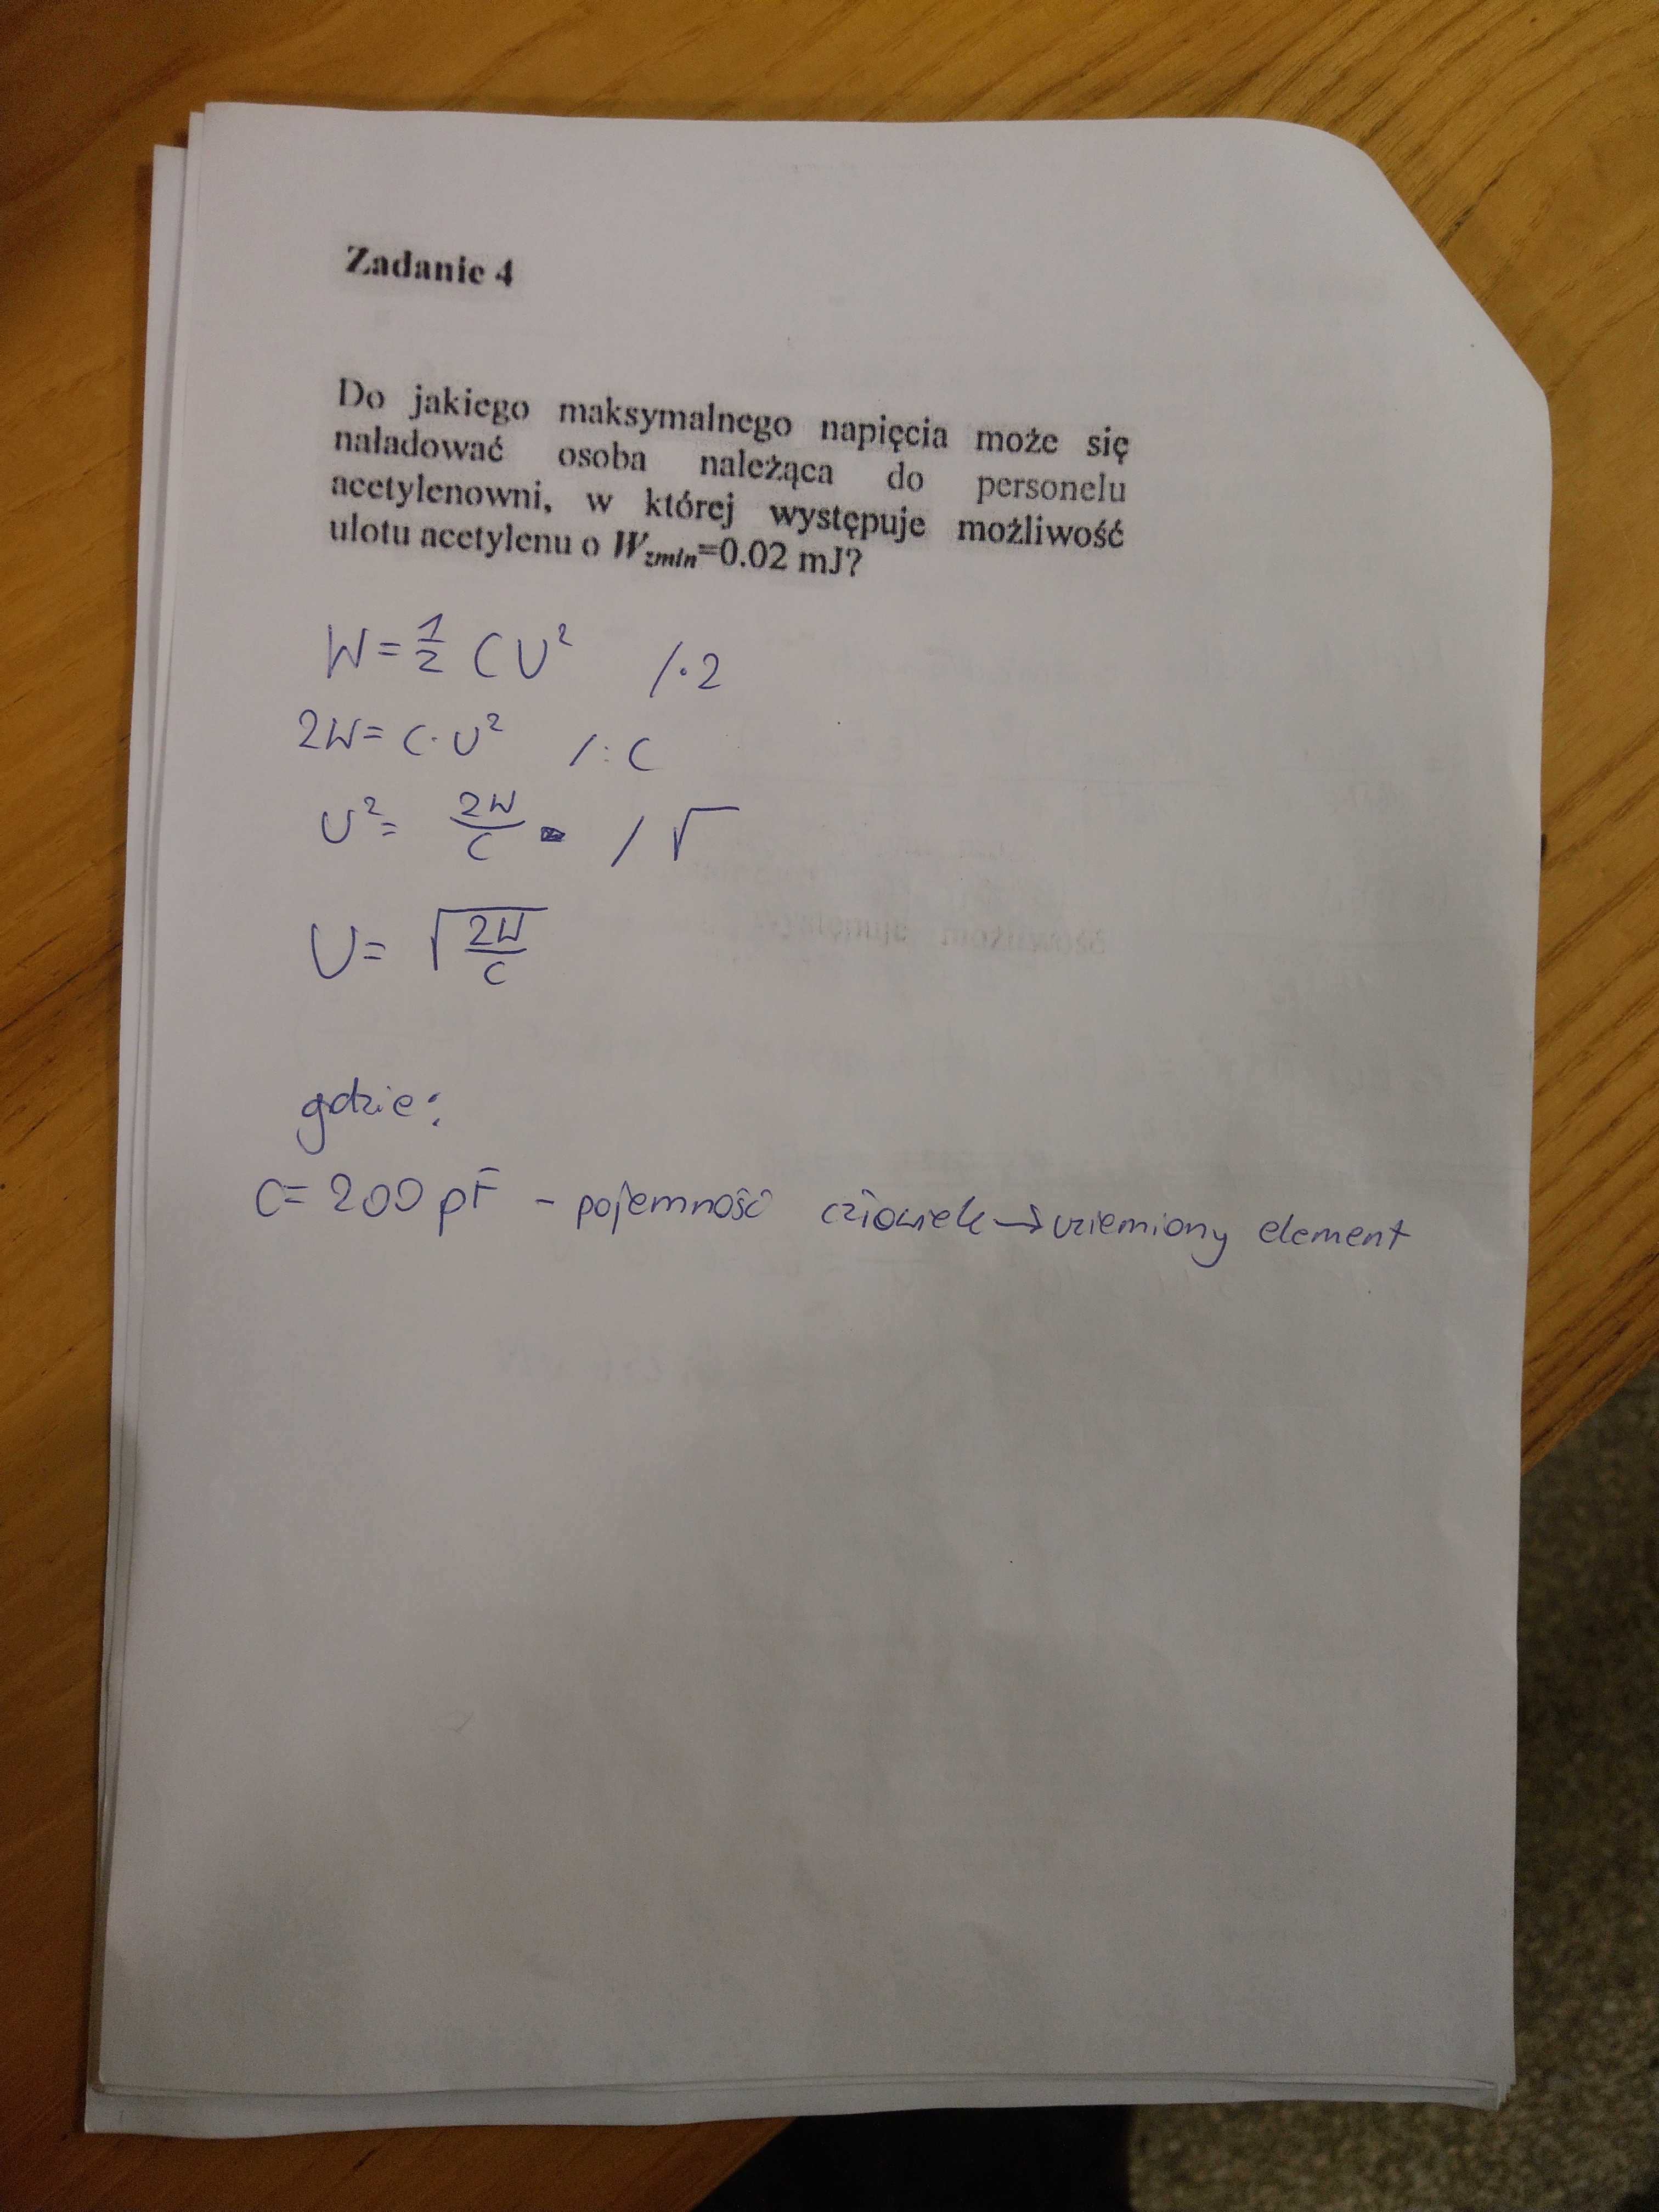 Zadanie 4
Do jakiego maksymalnego napięcia może się
naładować osoba należąca do personelu
acetylenowni, w której występuje możliwość
ulotu acetylenu o Wzmin=0.02 mJ?
W = 1/2 CU² /·2
2W = C·U² /:C
U² = 2W/C /√
U = √(2W/C)
gdzie:
C = 200 pF - pojemność człowiek → uziemiony element